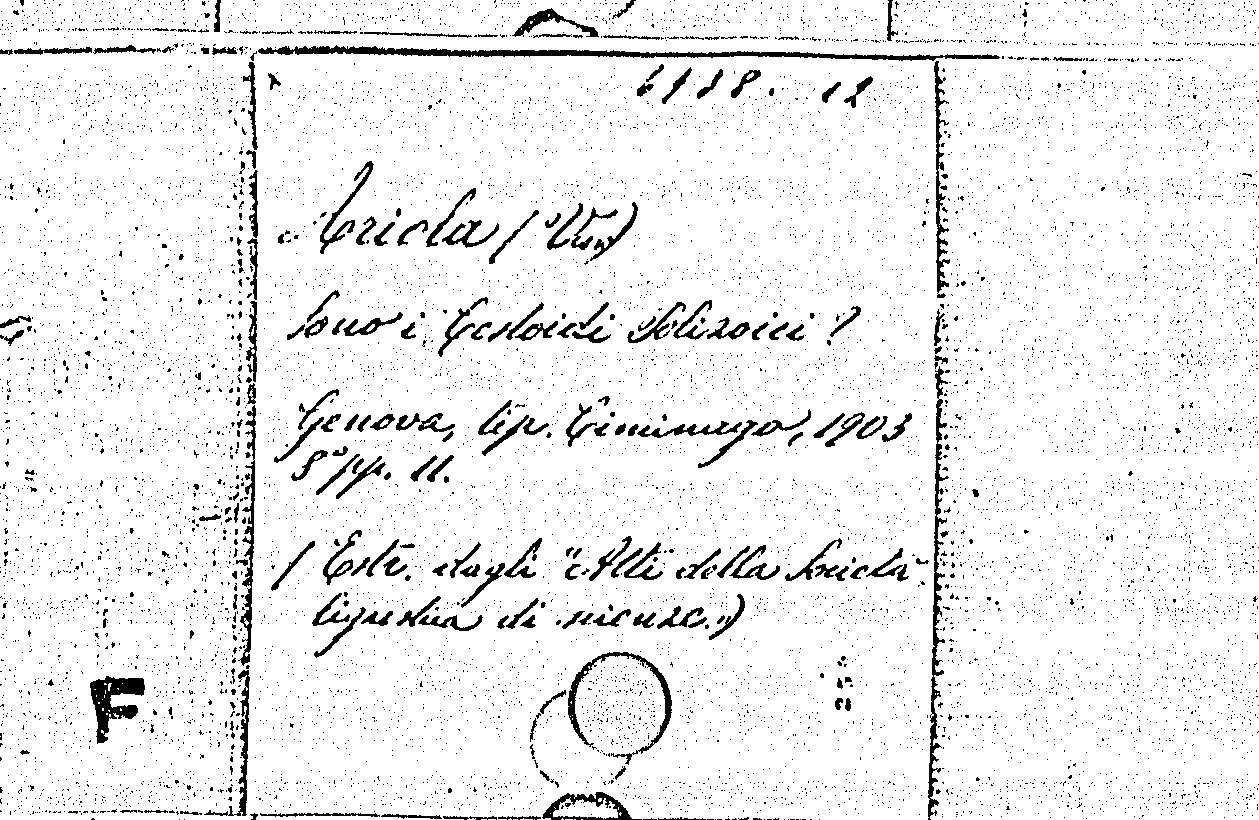 6138. 12
Ariola (Vin)
Sono i Cestoidi Polizoici?
Genova, tip. Ciminago, 1903
8° pp. 11.
(Estr. dagli "Atti della Società
ligustica di scienze.")
F